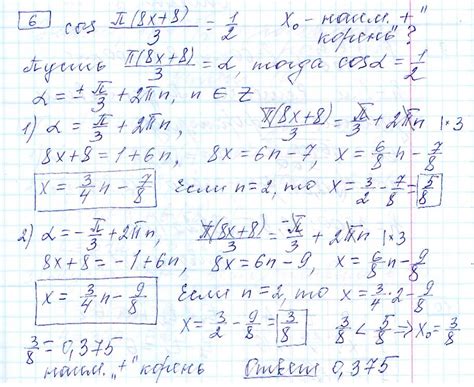 6 cos π(8x+8)/3 = 1/2 x₀ - наим. "+" корень?
Пусть π(8x+8)/3 = α, тогда cosα = 1/2
α = ± π/3 + 2πn, n ∈ Z
1) α = π/3 + 2πn, π(8x+8)/3 = π/3 + 2πn |×3
8x+8 = 1+6n, 8x = 6n-7, x = 6/8 n - 7/8
x = 3/4 n - 7/8 Если n=2, то x = 3/2 - 7/8 = 5/8
2) α = -π/3 + 2πn, π(8x+8)/3 = -π/3 + 2πn |×3
8x+8 = -1+6n, 8x = 6n-9, x = 6/8 n - 9/8
x = 3/4 n - 9/8 Если n=2, то x = 3/4·2 - 9/8
x = 3/2 - 9/8 = 3/8 3/8 < 5/8 => x₀ = 3/8
3/8 = 0,375
наим. "+" корень Ответ 0,375